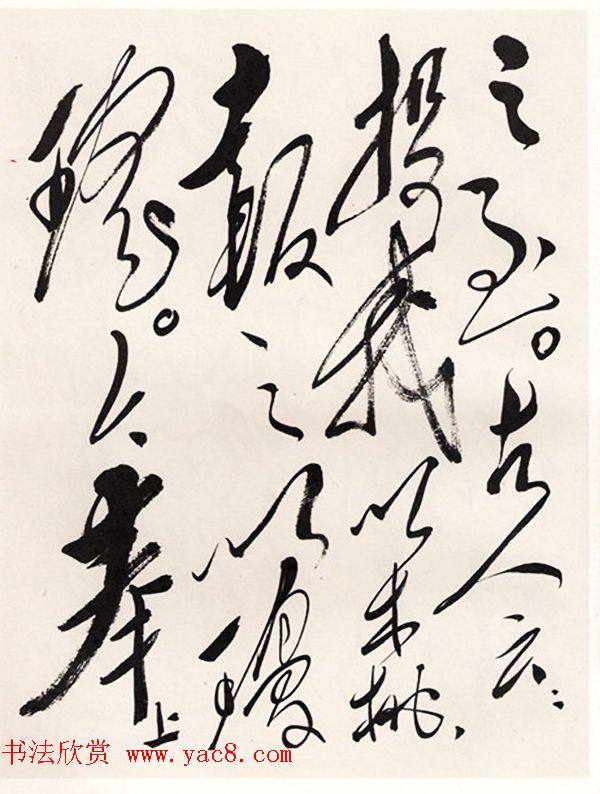 之至。古人云：
投我以木桃，
報之以瓊
瑶。今奉上
书法欣赏 www.yac8.com